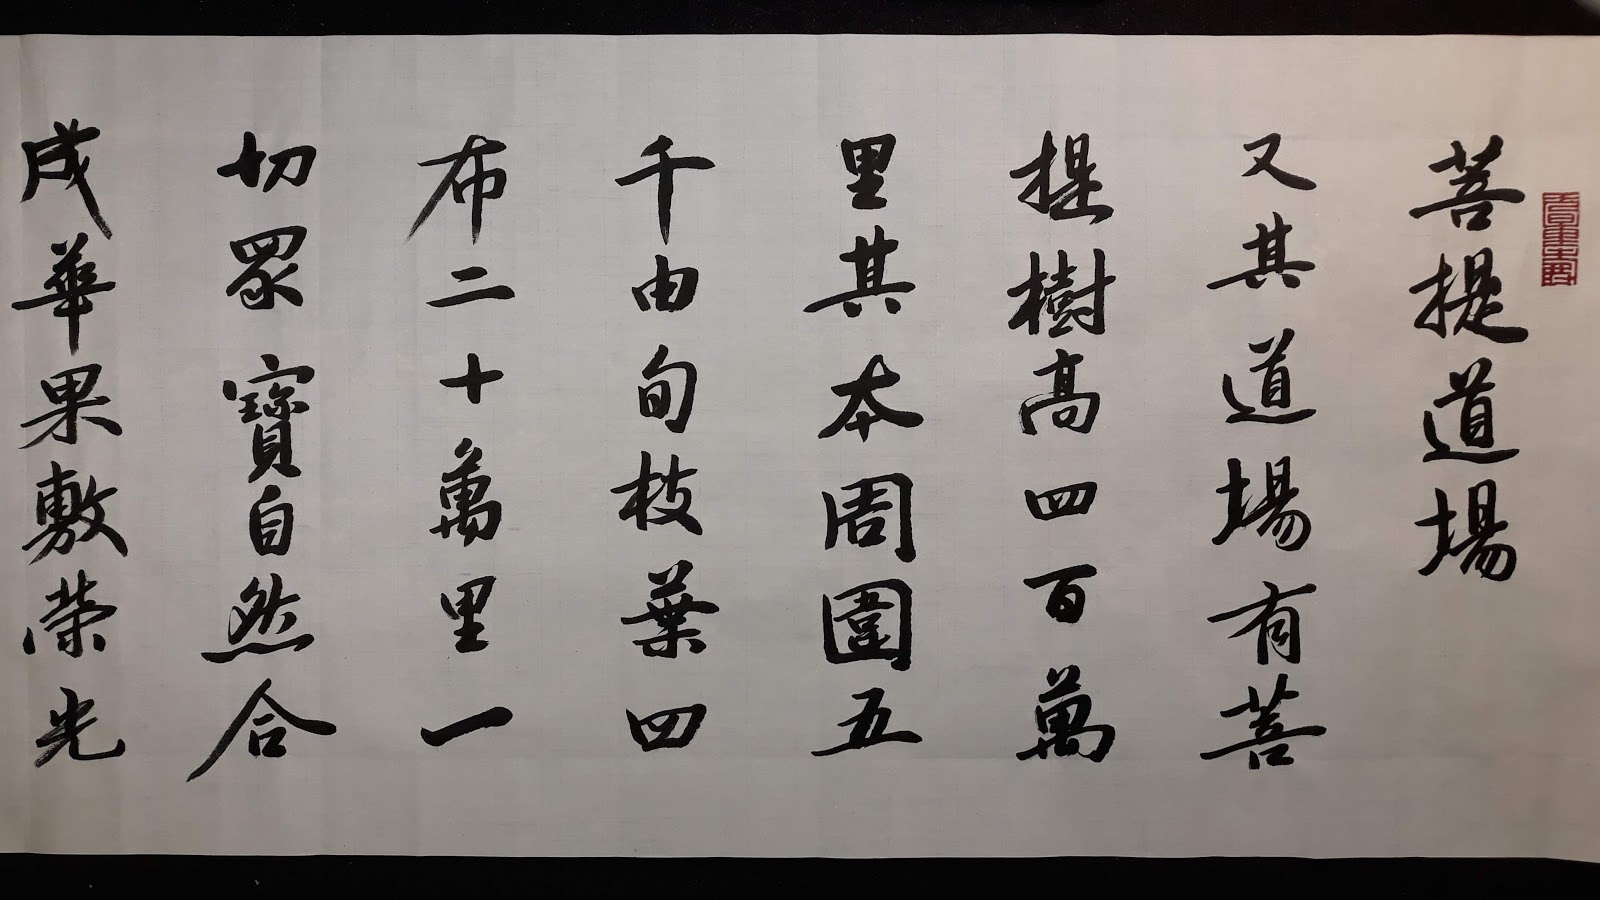 菩提道場
又其道場有菩
提樹高四百萬
里其本周圍五
千由旬枝葉四
布二十萬里一
切眾寶自然合
成華果敷榮光